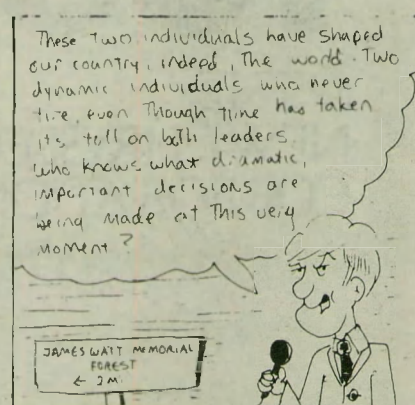 These Two individuals have shaped
our country, indeed, The world. Two
dynamic individuals who never
tire, even Though time has taken
its toll on both leaders.
who knows what dramatic,
important decisions are
being made at This very
moment?
JAMES WATT MEMORIAL
FOREST
← 2 M.